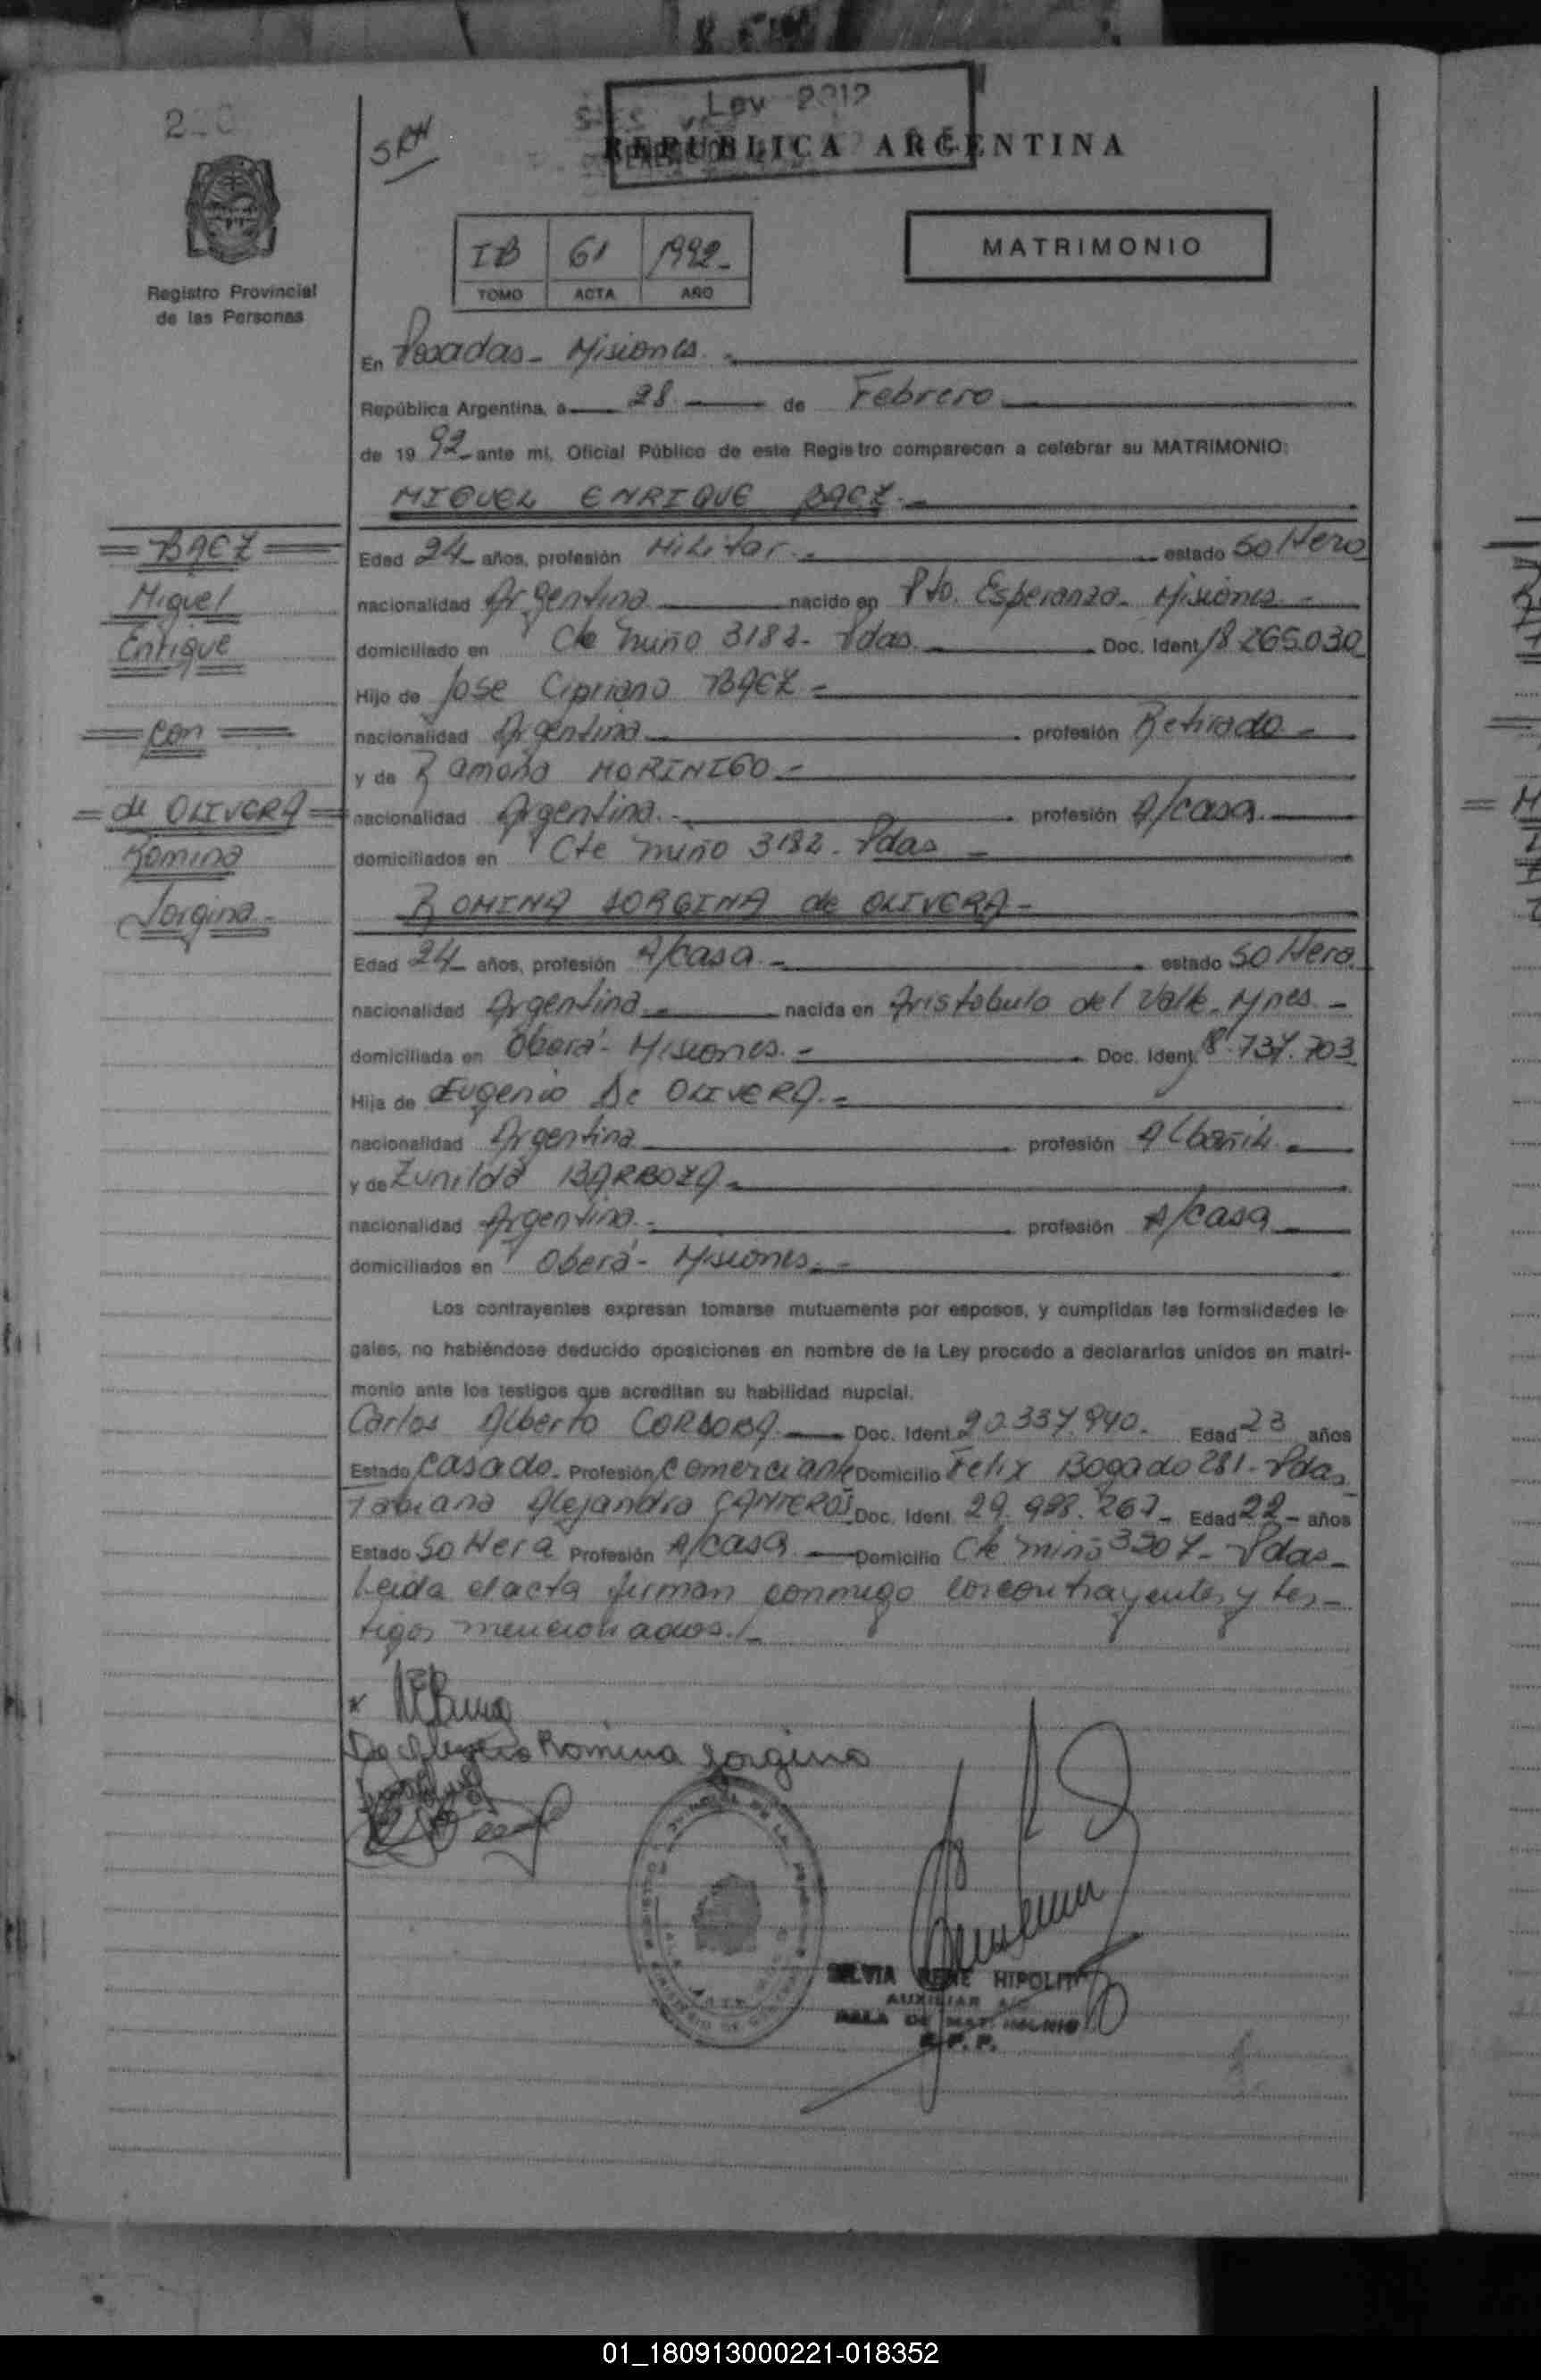 SRH
Ley 2312
REPUBLICA ARGENTINA
Registro Provincial
de las Personas
IB 61 1992-
TOMO ACTA AÑO
MATRIMONIO
En Posadas - Misiones.-
República Argentina, a 28 de Febrero
de 19 92 ante mi, Oficial Público de este Registro comparecen a celebrar su MATRIMONIO:
MIGUEL ENRIQUE BAEZ.-
BAEZ
Miguel
Enrique
con
de OLIVERA
Romina
Jorgina-
Edad 24 años, profesión Militar.- estado Soltero
nacionalidad Argentina nacido en Pto. Esperanza- Misiones-
domiciliado en Cte Miño 3182- Pdas. Doc. Ident 18.265.030
Hijo de Jose Cipriano BAEZ-
nacionalidad Argentina profesión Retirado-
y de Ramona MORINIGO-
nacionalidad Argentina.- profesión A/casa.
domiciliados en Cte Miño 3182- Pdas-
ROMINA JORGINA de OLIVERA-
Edad 24 años, profesión A/casa.- estado Soltera.
nacionalidad Argentina.- nacida en Aristobulo del Valle- Mnes-
domiciliada en Oberá- Misiones.- Doc. Ident. 18.737.703
Hija de Eugenio De OLIVERA.-
nacionalidad Argentina profesión Albañil.
y de Zunilda BARBOZA-
nacionalidad Argentina.- profesión A/casa
domiciliados en Oberá- Misiones.-
Los contrayentes expresan tomarse mutuamente por esposos, y cumplidas las formalidades le-
gales, no habiéndose deducido oposiciones en nombre de la Ley procedo a declararlos unidos en matri-
monio ante los testigos que acreditan su habilidad nupcial.
Carlos Alberto CORDOBA Doc. Ident. 20.337.940. Edad 23 años
Estado Casado. Profesión Comerciante Domicilio Felix Bogado 281- Pdas
Fabiana Alejandra CANTEROS Doc. Ident. 29.988.267- Edad 22- años
Estado Soltera Profesión A/casa Domicilio Cte Miño 3207- Pdas-
Leida el acta firman conmigo los contrayentes y tes-
tigos mencionados./-
De Olivera Romina Jorgina
SILVIA RENE HIPOLITO
AUXILIAR
SALA DE
R.P.P.
01_180913000221-018352